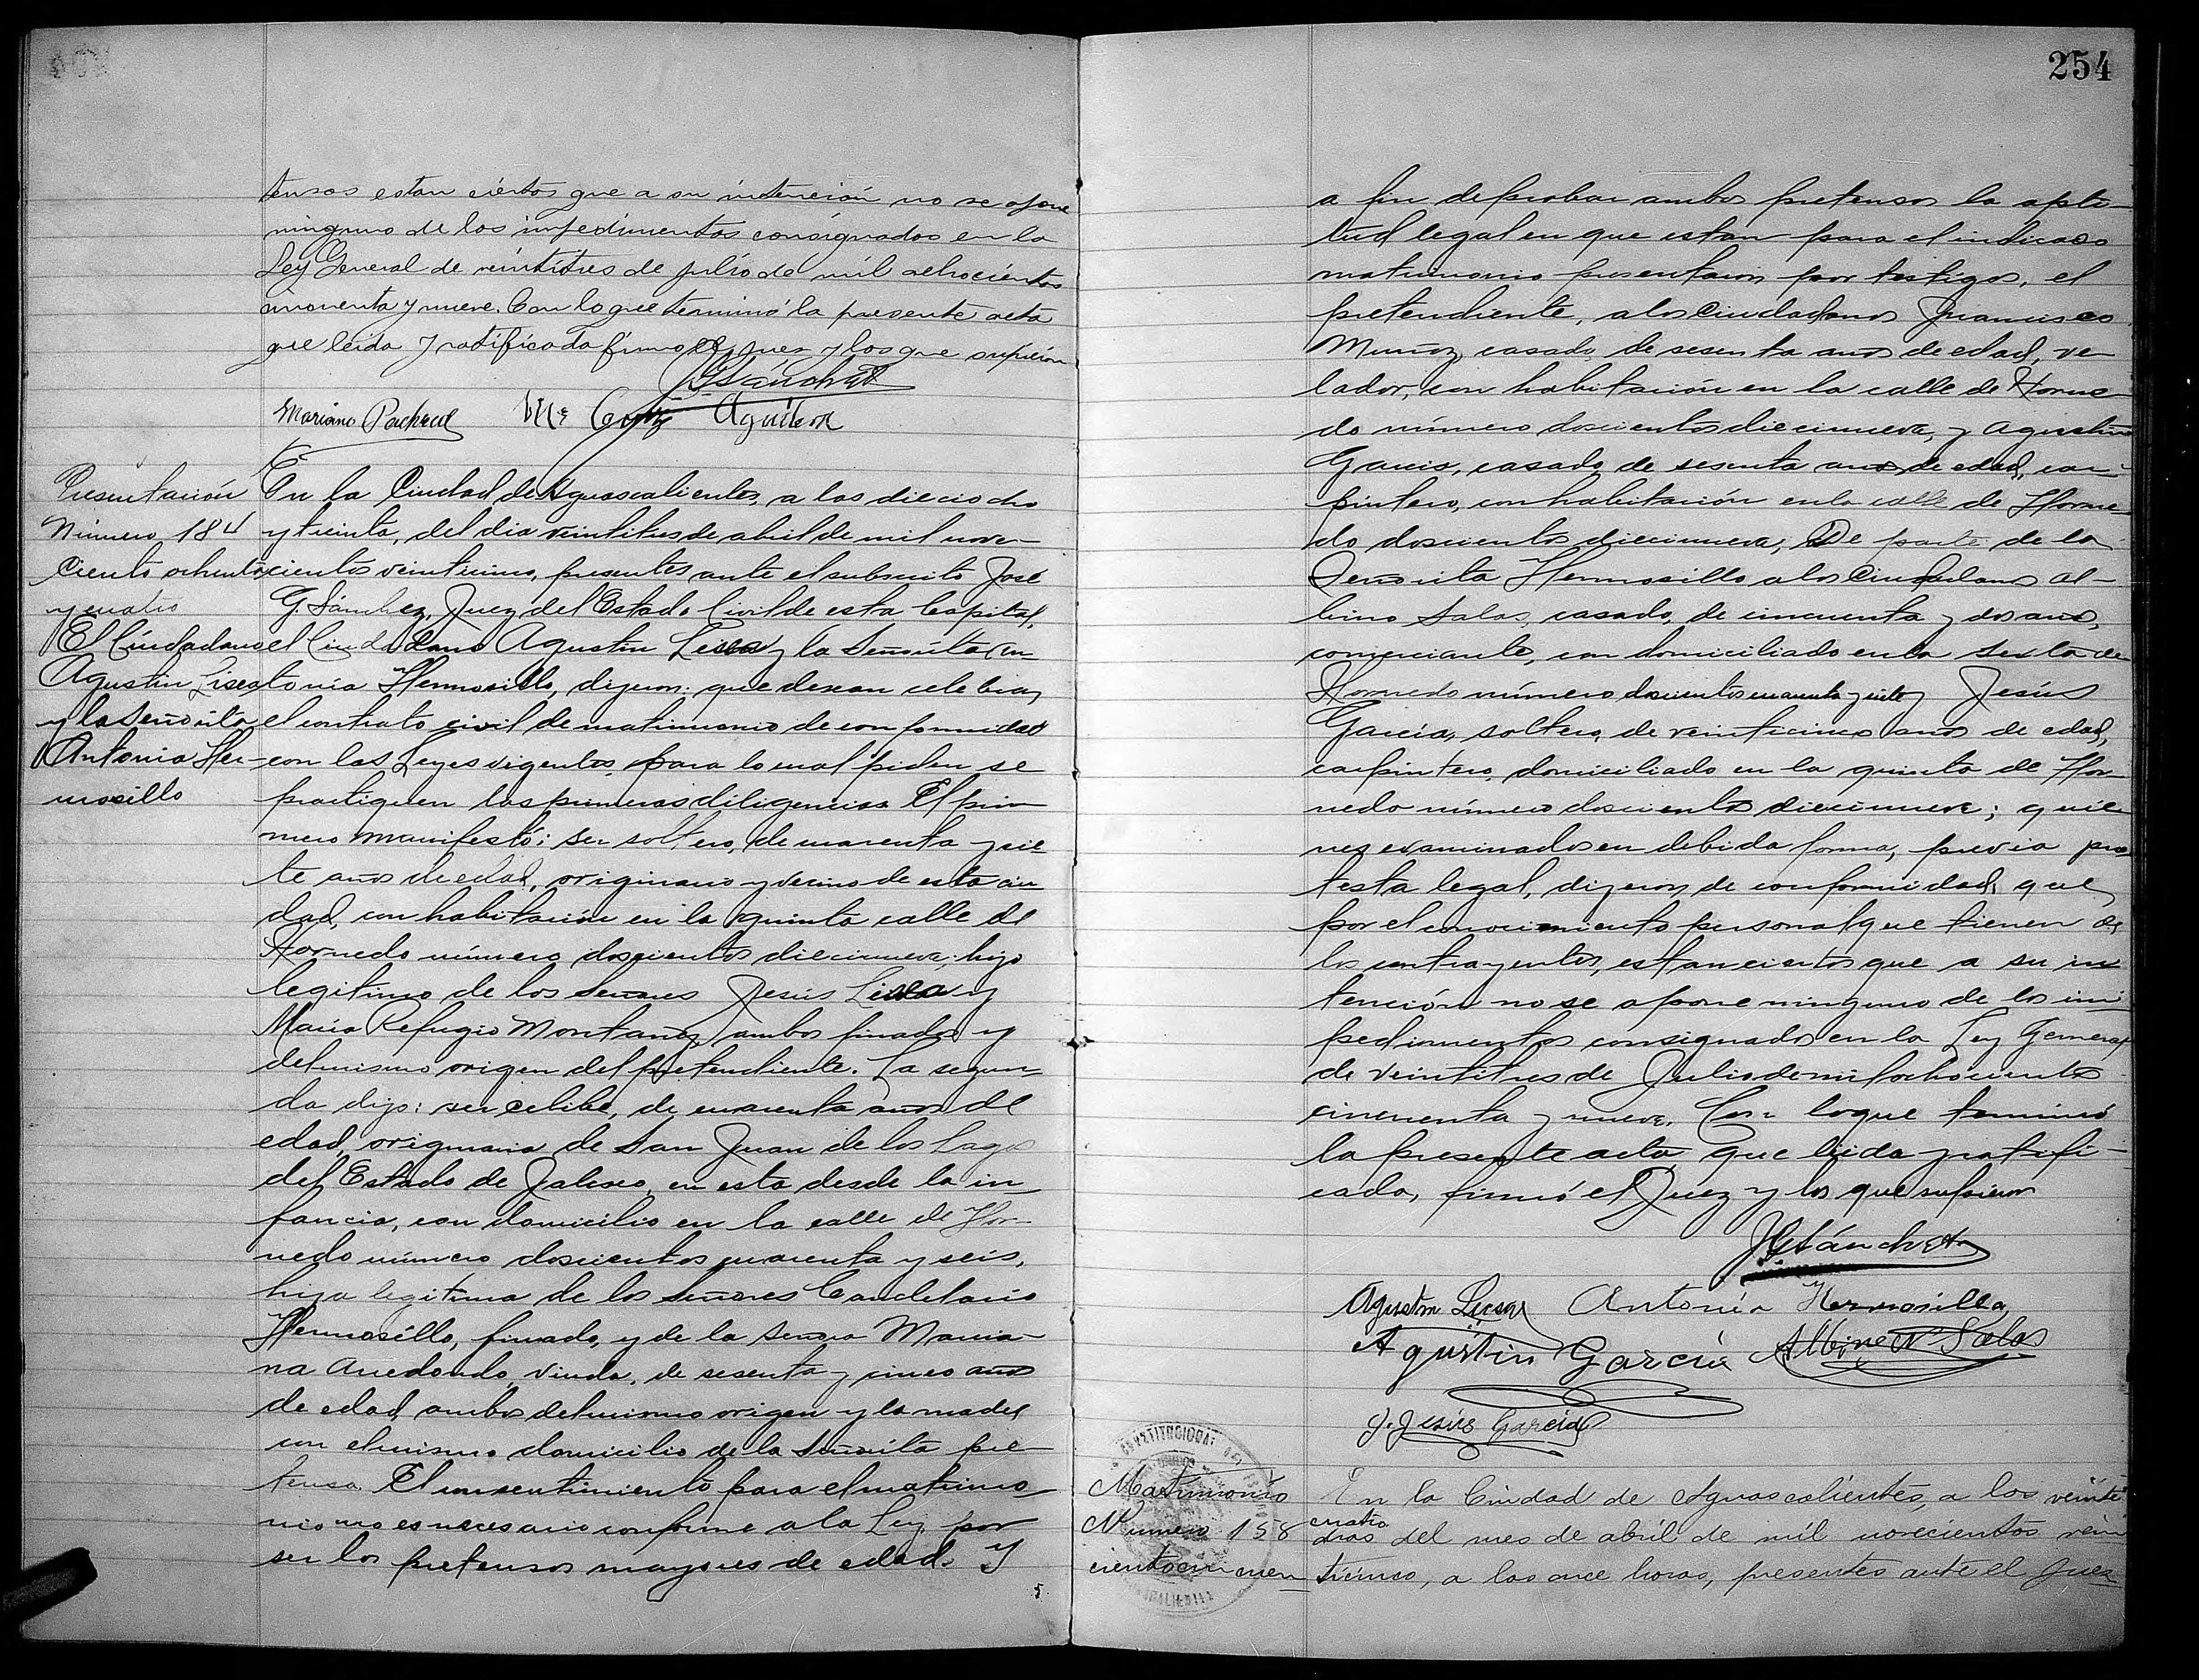 254
tensos estan ciertos que a su intención no se opone
ninguno de los impedimentos consignados en la
Ley General de veintitres de julio de mil ochocientos
cincuenta y nueve. Con lo que terminó la presente acta
que leida y ratificada firmó el Juez y los que supieron
JGSánchez
Mariano Pacheco Ma Cruz Aguilar
Presentación
Número 184
Ciento ochenta
y cuatro
El Ciudadano
Agustin Lisea
y la Señorita
Antonia Her-
mosillo
En la Ciudad de Aguascalientes, a las dieciocho
y treinta, del dia veintitres de abril de mil nove-
cientos veinticinco, presentes ante el subscrito José
G. Sánchez, Juez del Estado Civil de esta Capital,
el Ciudadano Agustin Lisea y la Señorita An-
tonia Hermosillo, dijeron: que desean celebrar
el contrato civil de matrimonio de conformidad
con las Leyes vigentes, para lo cual piden se
practiquen las primeras diligencias. El pri-
mero manifestó: ser soltero, de cuarenta y sie-
te años de edad, originario y vecino de esta ciu
dad, con habitación en la quinta calle de
Hornedo número doscientos diecinueve; hijo
legitimo de los Señores Jesús Lisea y
Maria Refugio Montañez, ambos finados y
del mismo origen del pretendiente. La segun-
da dijo: ser celibe, de cuarenta años de
edad, originaria de San Juan de los Lagos
del Estado de Jalisco, en esta desde la in
fancia, con domicilio en la calle de Hor-
nedo número doscientos cuarenta y seis,
hija legitima de los Señores Candelario
Hermosillo, finado, y de la Señora Maria-
na Arredondo, viuda, de sesenta y cinco años
de edad, ambos del mismo origen y la madre
con el mismo domicilio de la Señorita pre-
tensa. El consentimiento para el matrimo-
nio no es necesario conforme a la Ley, por
ser los pretensos mayores de edad. Y
a fin de probar ambos pretensos la apti-
tud legal en que estan para el indicado
matrimonio presentaron por testigos, el
pretendiente, a los Ciudadanos Francisco
Muñoz, casado, de sesenta años de edad, ve-
lador, con habitación en la calle de Horne-
do número doscientos diecinueve, y Agustin
Garcia, casado, de sesenta años de edad, car-
pintero, con habitación en la calle de Horne-
do doscientos diecinueve; De parte de la
Señorita Hermosillo, a los Ciudadanos Al-
bino Salas, casado, de cincuenta y dos años,
comerciante, con domiciliado en la sexta de
Hornedo número doscientos cuarenta y siete y Jesús
Garcia, soltero, de veinticinco años de edad,
carpintero, domiciliado en la quinta de Hor-
nedo número doscientos diecinueve; quie-
nes examinados en debida forma, previa pro
testa legal, dijeron de conformidad: que
por el conocimiento personal que tienen de
los contrayentes, estan ciertos que a su in
tención no se opone ninguno de los im-
pedimentos consignados en la Ley General
de veintitres de Julio de mil ochocientos
cincuenta y nueve. Con lo que terminó
la presente acta, que leida y ratifi-
cada, firmó el Juez y los que supieron
JGSánchez
Agustin Liseas Antonia Hermosillo
Agustin Garcia Albino Salas
J. Jesús Garcia
Matrimonio
Número 158
ciento cincuen
En la Ciudad de Aguascalientes, a los veinti
cuatro
dias del mes de abril de mil novecientos vein
ticinco, a las once horas, presentes ante el Juez